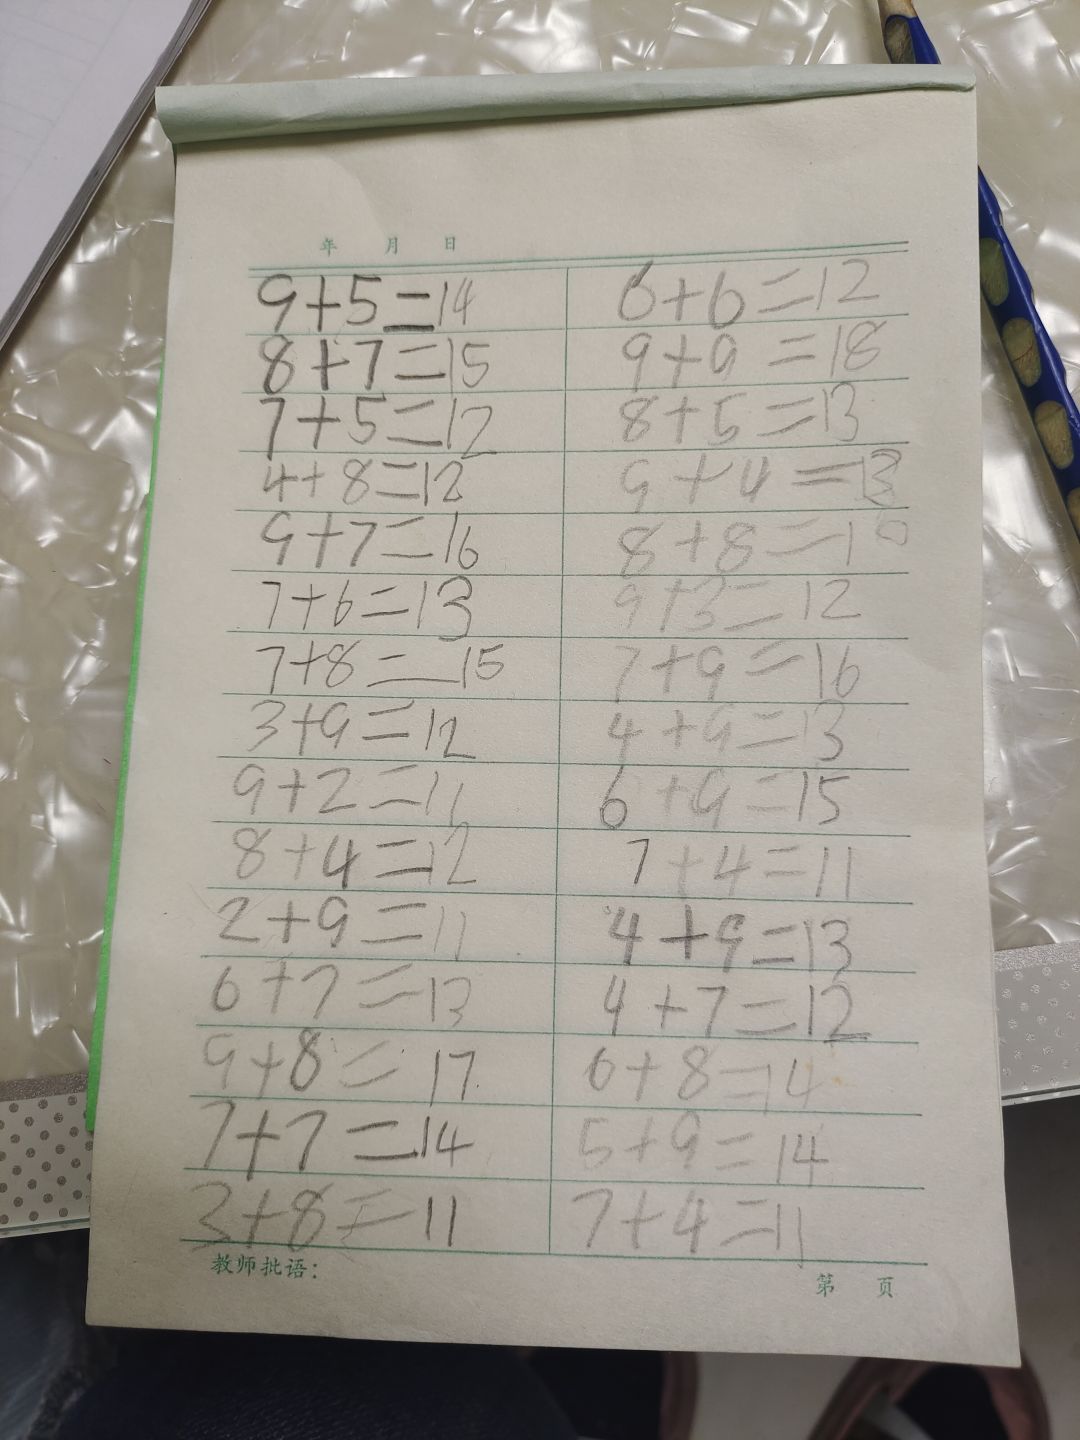 年 月 日
9+5=14
8+7=15
7+5=12
4+8=12
9+7=16
7+6=13
7+8=15
3+9=12
9+2=11
8+4=12
2+9=11
6+7=13
9+8=17
7+7=14
3+8=11
6+6=12
9+9=18
8+5=13
9+4=13
8+8=16
9+3=12
7+9=16
4+9=13
6+9=15
7+4=11
4+9=13
4+7=12
6+8=14
5+9=14
7+4=11
教师批语:
第 页